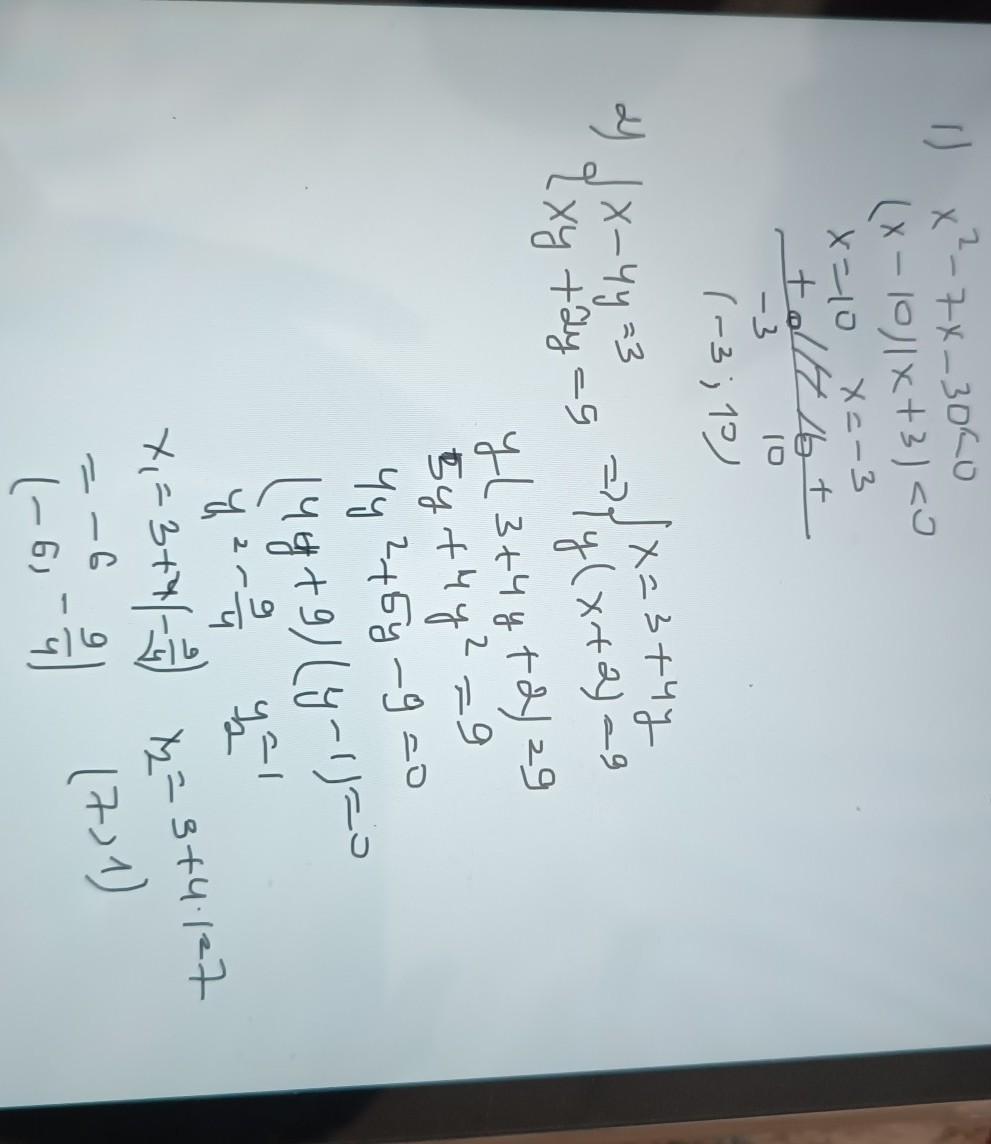 1) x² - 7x - 30 < 0
(x - 10)(x + 3) < 0
x = 10 x = -3
+ +
-3 10
(-3; 10)
2) { x - 4y = 3
{ xy + 2y = 9
=> { x = 3 + 4y
{ y(x + 2) = 9
y(3 + 4y + 2) = 9
5y + 4y² = 9
4y² + 5y - 9 = 0
(4y + 9)(y - 1) = 0
y = -9/4 y₂ = 1
x₁ = 3 + 4(-9/4) x₂ = 3 + 4·1 = 7
= -6
(-6, -9/4) (7, 1)